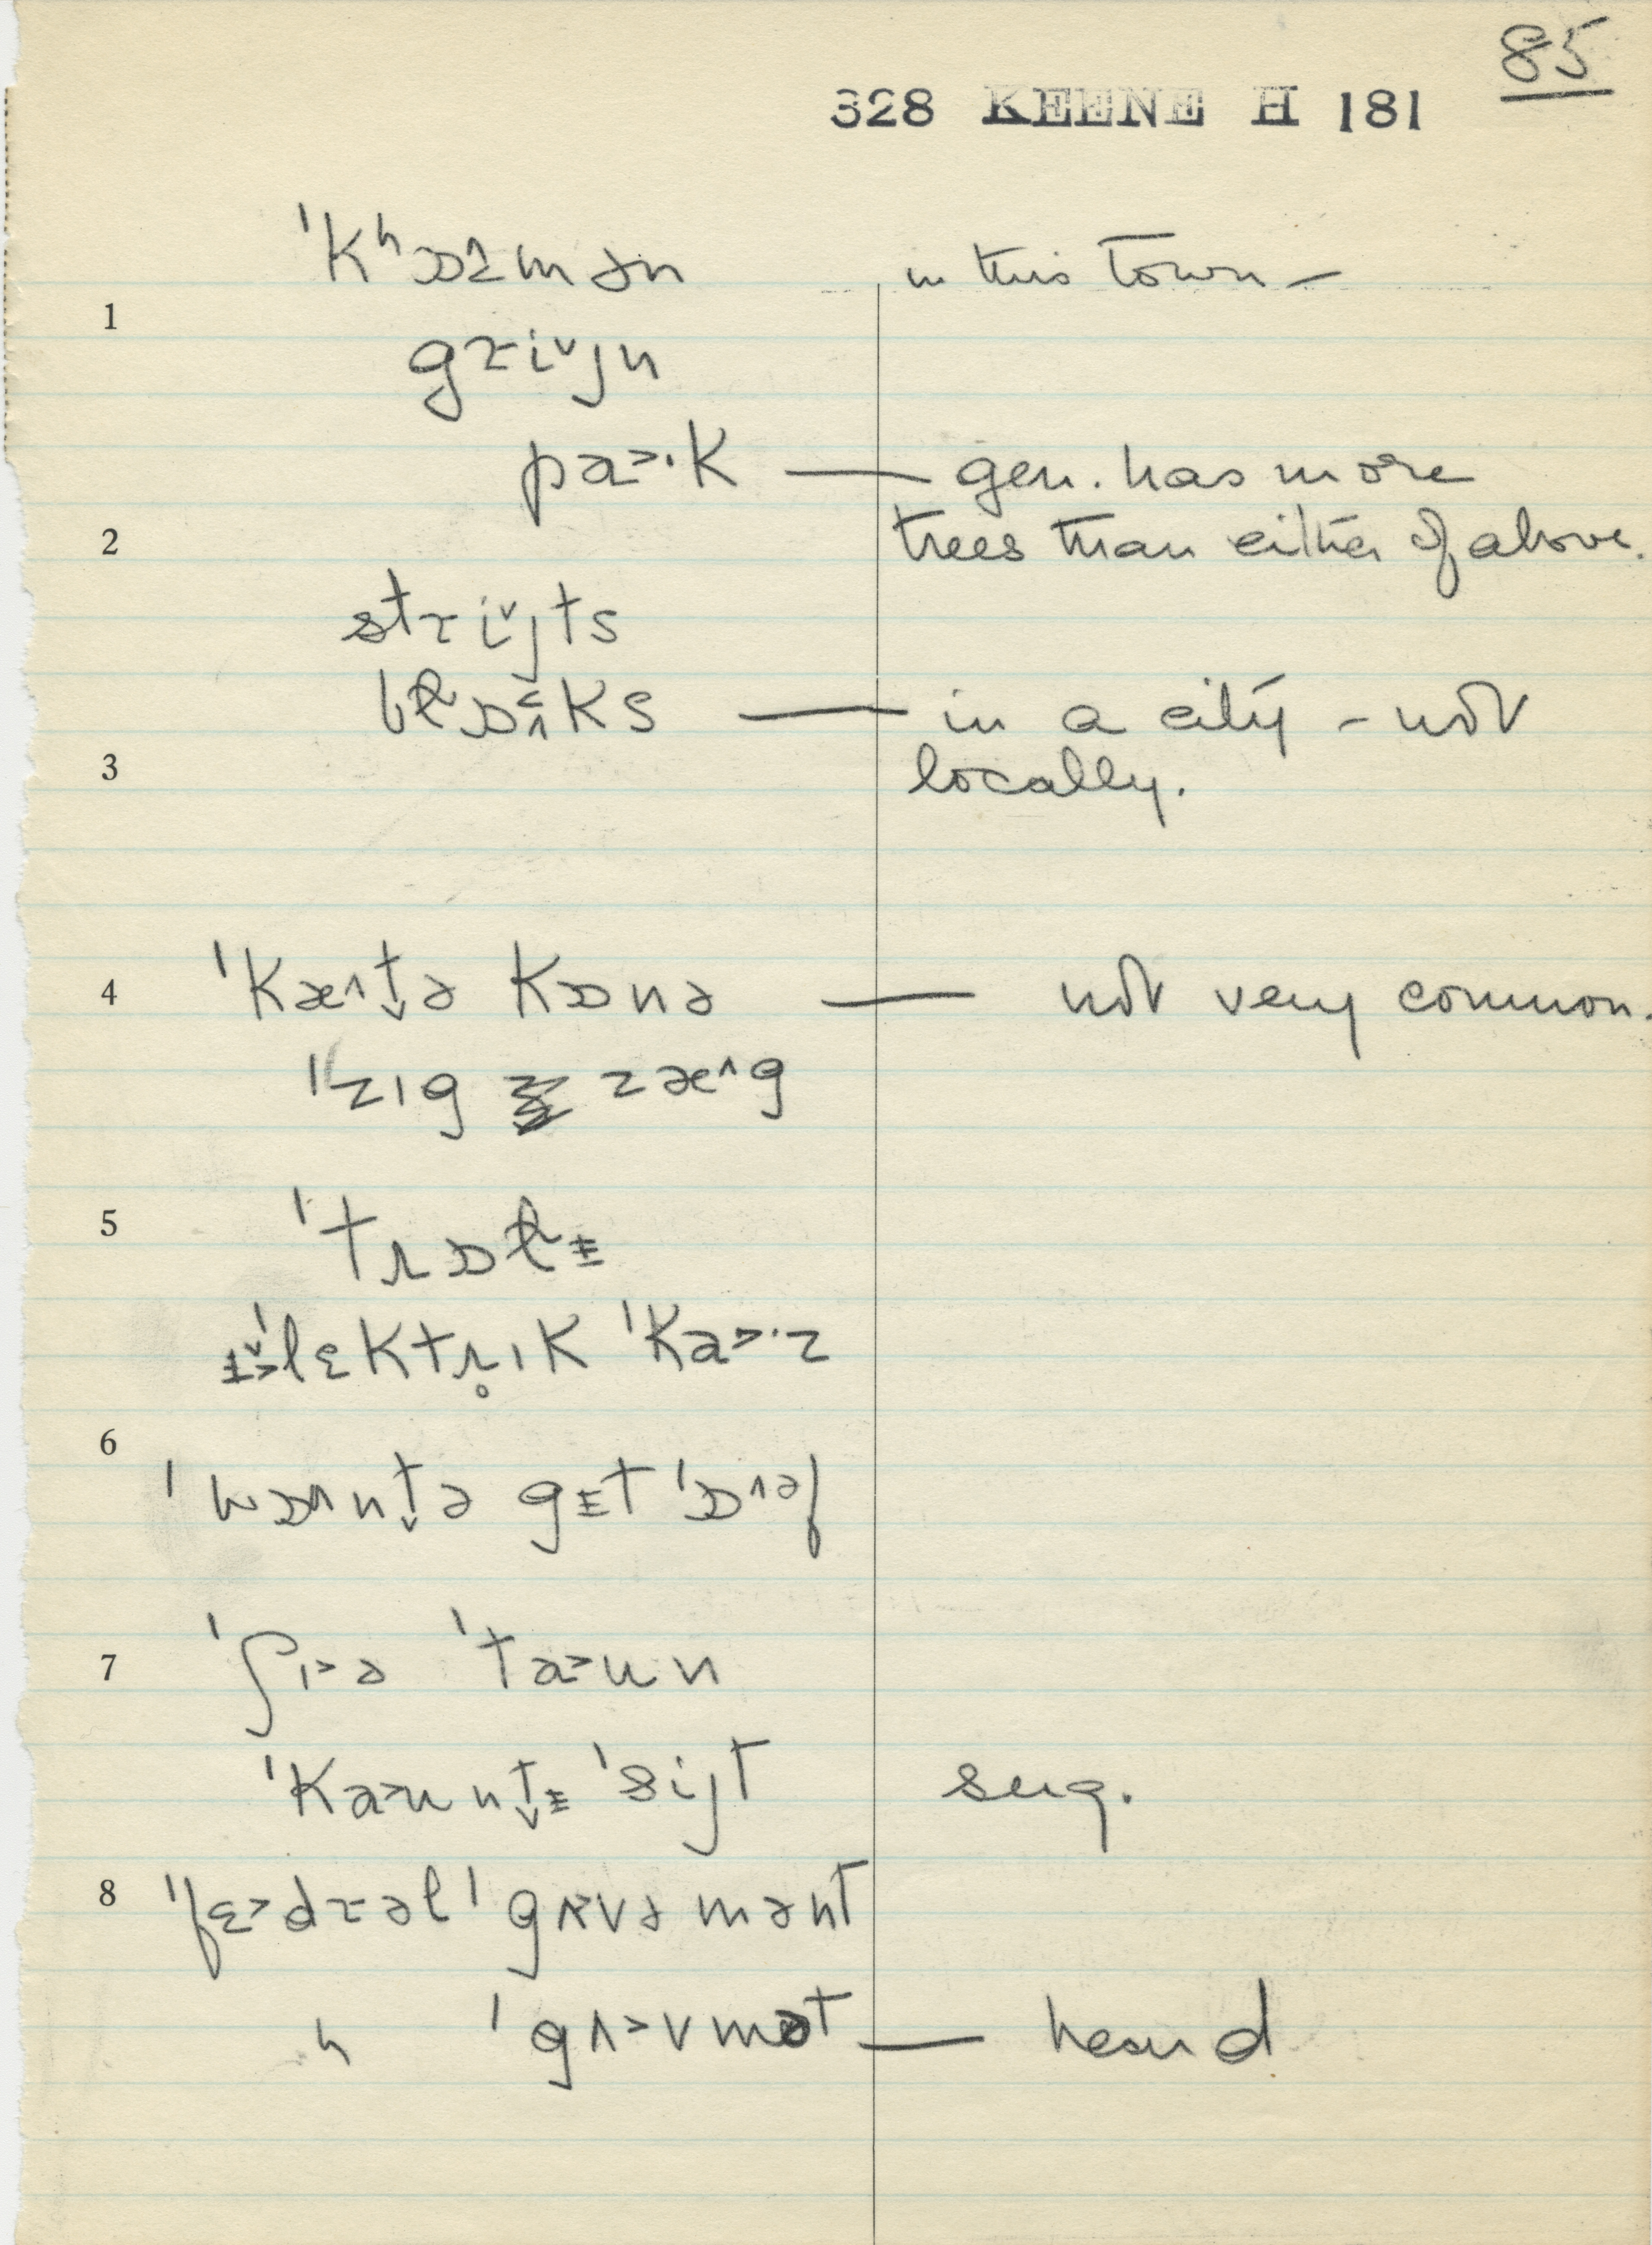 85
328 KEENE H 181
ˈkʰɒɹmən in this town –
1
gɹi˅jn
pa˃·k — gen. has more
2 trees than either of above.
stɹi˅jts
blɒks — in a city – not
3 locally.
4 ˈkæ˄t̬ə kɒnə — not very common.
ˈzɪg zæ˄g
5 ˈtɹɒlɨ
ˈlɛktɹ̥ɪk ˈka˃·z
6
ˈwɒ˄nt̬ə gɨt ˈɒ˄əf
7 ˈʃɪ˃ə ˈta˃un
ˈka˃unt̬ɨ ˈsijt sug.
8 ˈfɛ˃dɹəl ˈgʌ˃vəmənt
" ˈgʌ˃vmət — heard